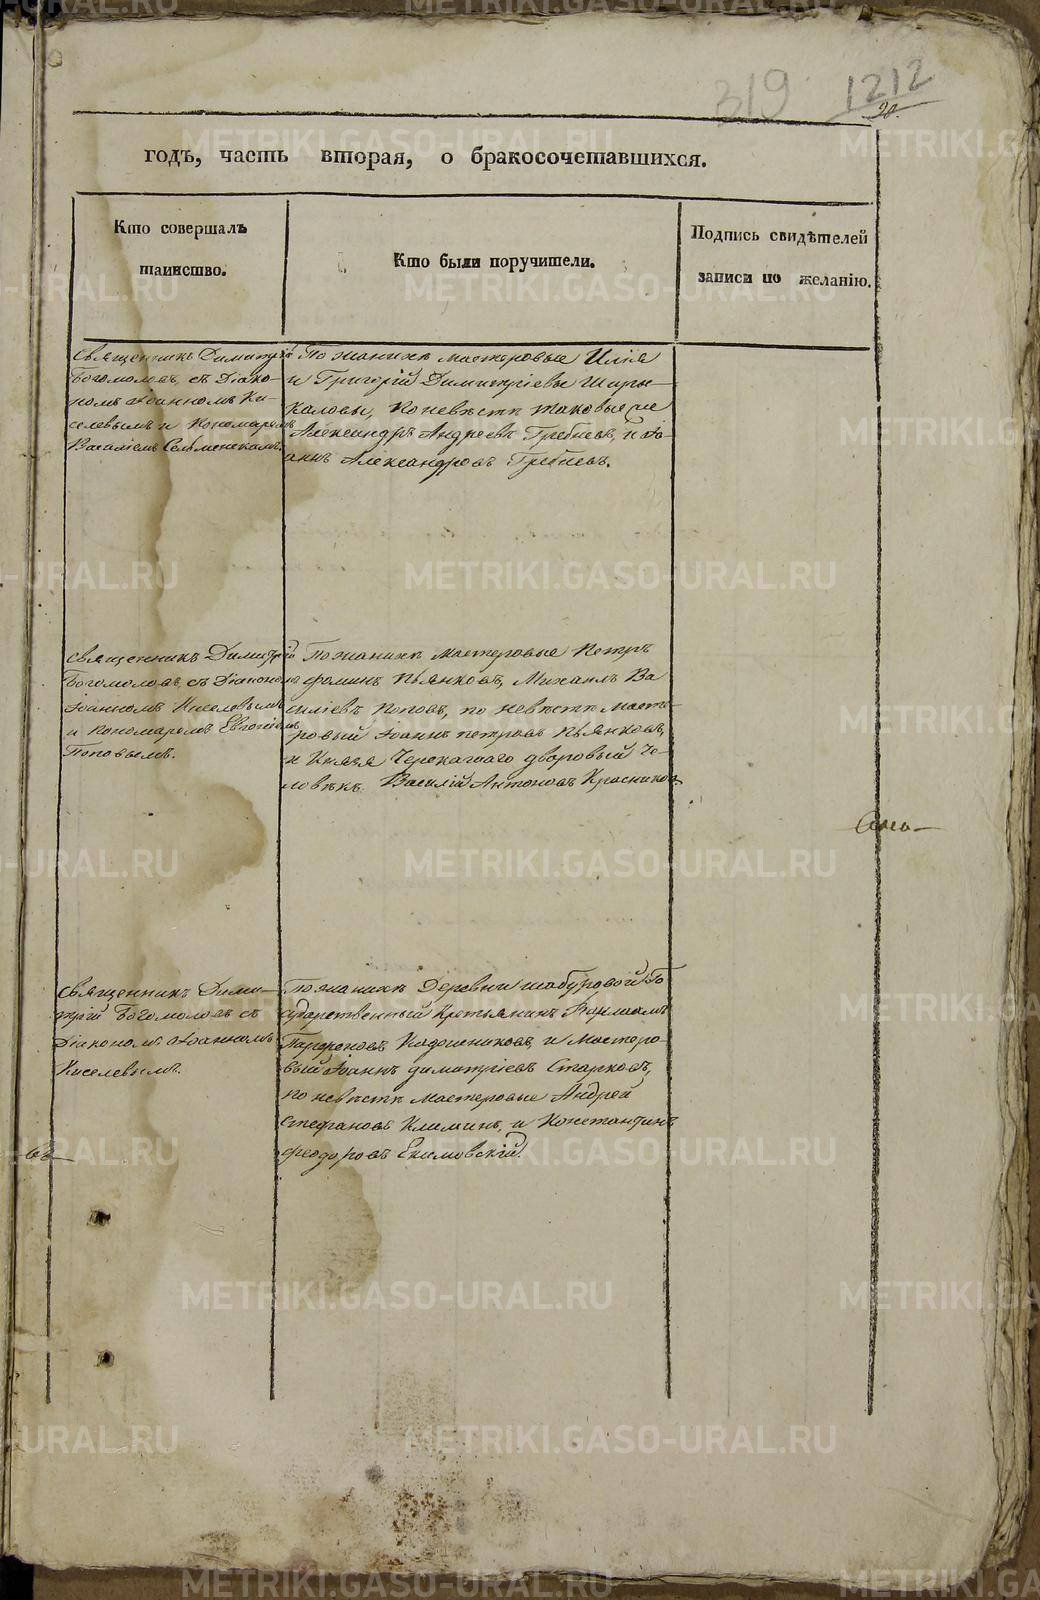 319 1212
20
годъ, часть вторая, о бракосочетавшихся.
Кто совершалъ таинство.
Кто были поручители.
Подпись свидѣтелей записи по желанію.
Священникъ Димитрій
Богомоловъ, съ Діако-
номъ Іоанномъ Ки-
селевымъ и Пономаремъ
Василіемъ
По женихѣ мастеровые Илія
и Григорій Димитріевы Шары-
каловы, по невѣстѣ таковые же
Александръ Андреевъ Гребневъ, и Іо-
аннъ Александровъ Гребневъ.
Священникъ Димитрій
Богомоловъ, съ Діакономъ
Іоанномъ Киселевымъ
и пономаремъ Евгеніемъ
Поповымъ.
По женихѣ Мастеровые Петръ
Фоминъ Пьянковъ, Михаилъ Ва
силіевъ Поповъ, по невѣстѣ масте-
ровый Іоаннъ петровъ Пьянковъ,
и Князя дворовый че-
ловѣкъ Василій Антоновъ
Священникъ Дими-
трій Богомоловъ съ
Діакономъ Іоанномъ
Киселевымъ.
По женихѣ Деревни Шабуровой Го
сударственный Крестьянинъ
Парфеновъ и Мастеро-
вый Іоаннъ димитріевъ Старковъ,
по невѣстѣ мастеровые Андрей
Стефановъ Климинъ, и Константинъ
феодоровъ Екимовскій.
METRIKI.GASO-URAL.RU